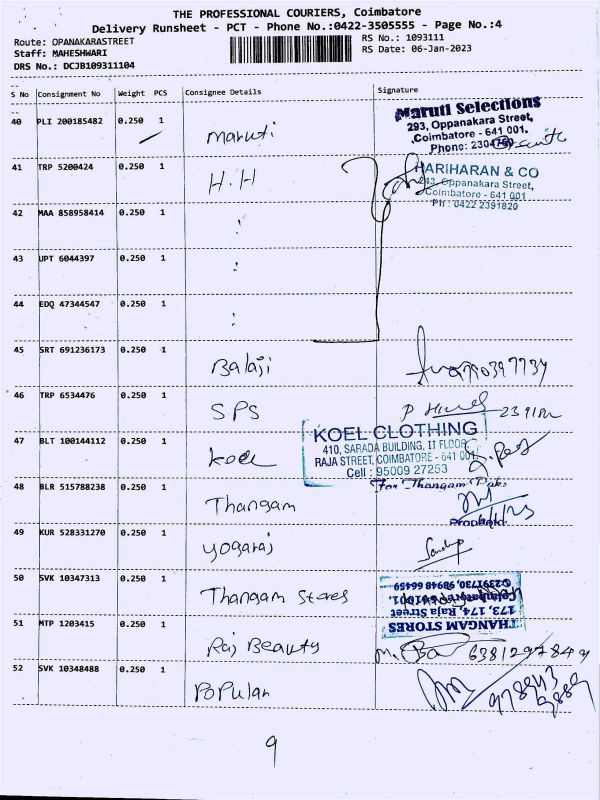 THE PROFESSIONAL COURIERS, Coimbatore
Delivery Runsheet - PCT - Phone No.:0422-3505555 - Page No.:4
Route: OPANAKARASTREET
Staff: MAHESHWARI
DRS No.: DCJB109311104
RS No.: 1093111
RS Date: 06-Jan-2023
S No Consignment No Weight PCS Consignee Details Signature
40 PLI 200185482 0.250 1 Maruti
Maruti Selections
293, Oppanakara Street,
Coimbatore - 641 001.
Phone: 2304
41 TRP 5200424 0.250 1 H.H
HARIHARAN & CO
243, Oppanakara Street,
Coimbatore - 641 001
Ph : 0422 2391820
42 MAA 858958414 0.250 1 :
43 UPT 6044397 0.250 1 :
44 EDQ 47344547 0.250 1 :
45 SRT 691236173 0.250 1 Balaji
46 TRP 6534476 0.250 1 SPS
47 BLT 100144112 0.250 1 Koel
KOEL CLOTHING
410, SARADA BUILDING, II FLOOR
RAJA STREET, COIMBATORE - 641 001
Cell : 95009 27253
48 BLR 515788238 0.250 1 Thangam
For Thangam
49 KUR 528331270 0.250 1 Yogaraj
50 SVK 10347313 0.250 1 Thangam Stores
THANGAM STORES
173, 174, Raja Street
Coimbatore - 641001.
✆2391730, 98948 66459
51 MTP 1203415 0.250 1 Raj Beauty 6381297849
52 SVK 10348488 0.250 1 Popular
9